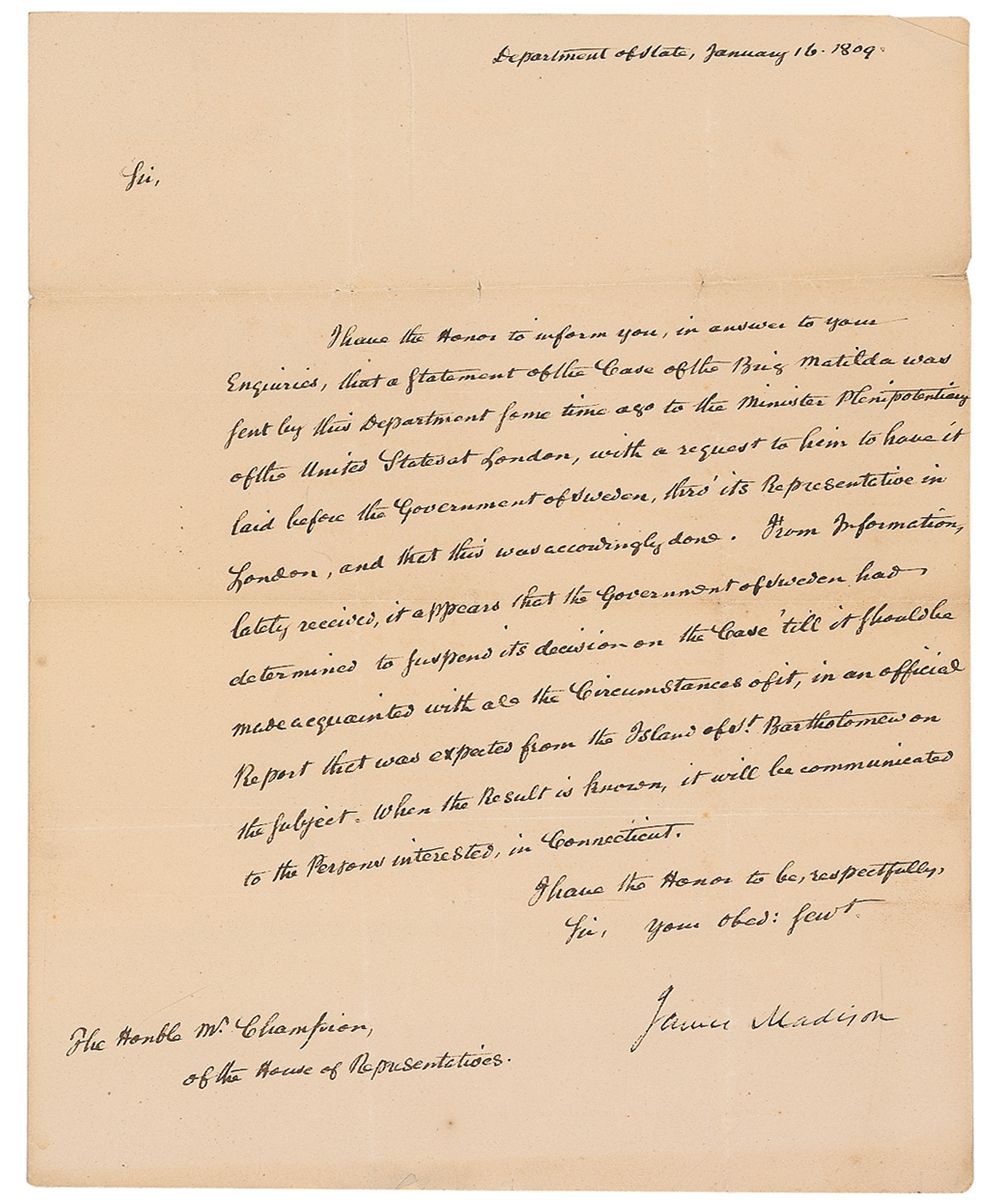 Department of State, January 16. 1809.
Sir,
I have the Honor to inform you, in answer to your
Enquiries, that a Statement of the Case of the Brig Matilda was
sent by this Department some time ago to the Minister Plenipotentiary
of the United States at London, with a request to him to have it
laid before the Government of Sweden, thro' its Representative in
London, and that this was accordingly done. From Information,
lately received, it appears that the Government of Sweden had
determined to suspend its decision on the Case 'till it should be
made acquainted with all the Circumstances of it, in an official
Report that was expected from the Island of St. Bartholomew on
the subject. When the Result is known, it will be communicated
to the Persons interested, in Connecticut.
I have the Honor to be, respectfully,
Sir, Your Obed: Servt.
James Madison
The Honble Mr. Champion,
of the House of Representatives.